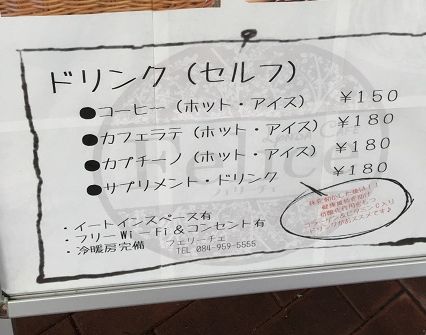 ドリンク(セルフ)
●コーヒー(ホット・アイス) ¥150
●カフェラテ(ホット・アイス) ¥180
●カプチーノ(ホット・アイス) ¥180
●サプリメント・ドリンク ¥180
・イートインスペース有
・フリーWi-Fi&コンセント有
・冷暖房完備
フェリーチェ
TEL 084-959-5555
コラーゲン&ビタミンC入り
ドリンクがおススメです♪